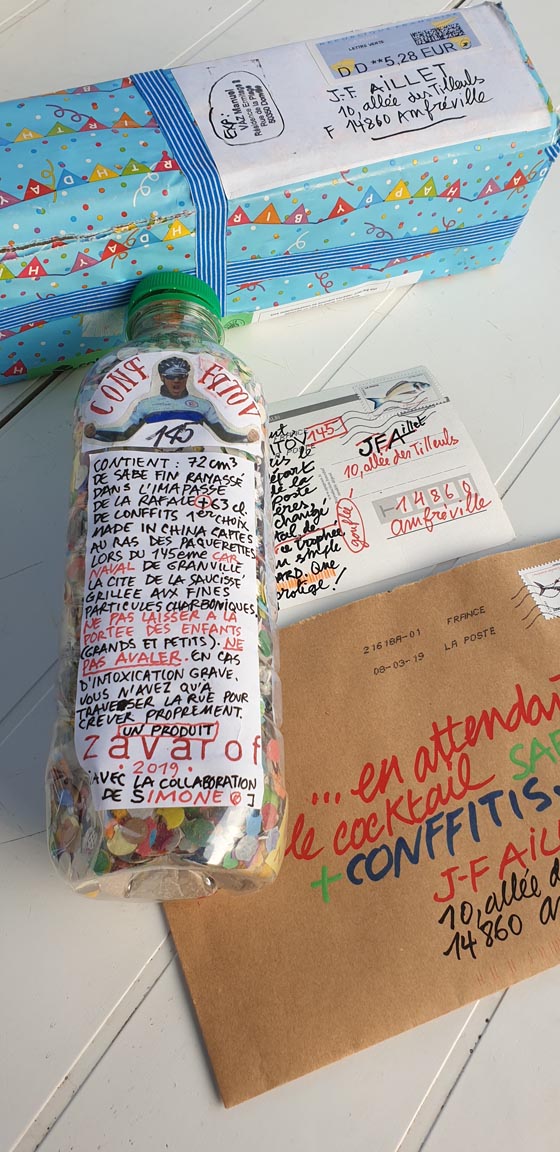 LETTRE VERTE
DD **5,28 EUR
J-F AILLET
10, allée des Tilleuls
F 14860 Amfréville
EXP:
VAZ Manuel
CONF FITOV
145
CONTIENT : 72 cm3
DE SABE FIN RAMASSÉ
DANS L'IMAPASSE
DE LA RAFALE + 63 cl.
DE CONFFITS 1er CHOIX
MADE IN CHINA CAPTÉS
AU RAS DES PAQUERETTES
LORS DU 145ème CAR
NAVAL DE GRANVILLE
LA CITÉ DE LA SAUCISSE
GRILLÉE AUX FINES
PARTICULES CHARBONIQUES
NE PAS LAISSER A LA
PORTÉE DES ENFANTS
(GRANDS ET PETITS). NE
PAS AVALER. EN CAS
D'INTOXICATION GRAVE,
VOUS N'AVEZ QU'A
TRAVERSER LA RUE POUR
CREVER PROPREMENT.
UN PRODUIT
zavarof
• 2019 •
AVEC LA COLLABORATION
DE SIMONE
145
JF Aillet
10, allée des Tilleuls
14860
amfréville
gonflé
trophée
simple
21618A-01 FRANCE
08-03-19 LA POSTE
... en attendant
le cocktail SAB
+ CONFFITIS.
J-F AIL
10, allée d
14860 am